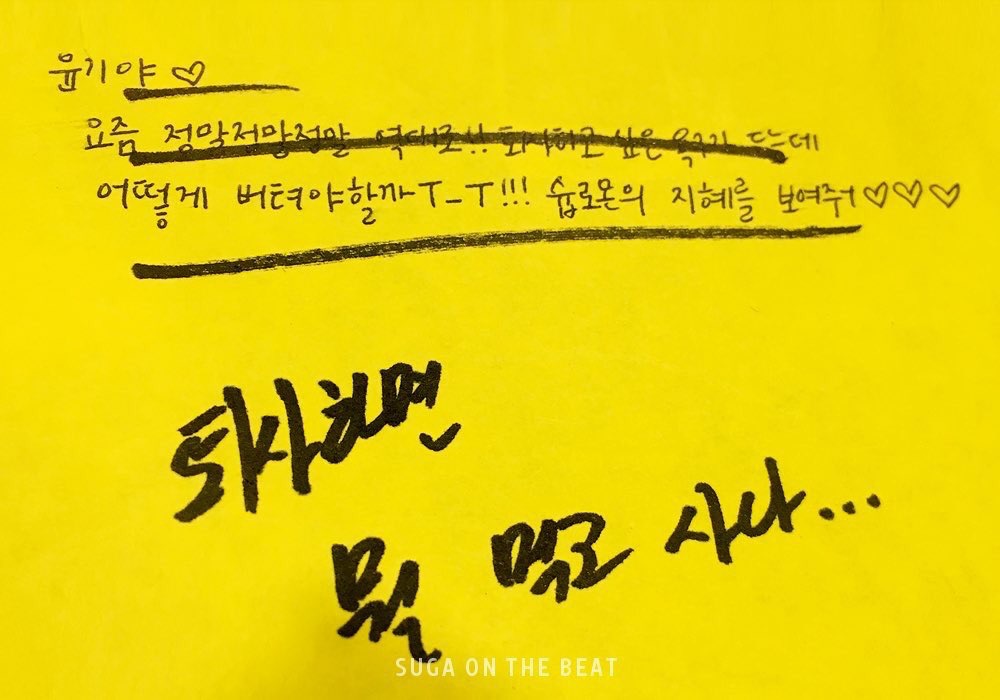 윤기야 ♡
요즘 정말정말정말 역대로!! 퇴사하고 싶은 욕구가 드는데
어떻게 버텨야할까 T_T!!! 슙로몬의 지혜를 보여줘 ♡♡♡
퇴사하면
뭘 먹고 사나...
SUGA ON THE BEAT